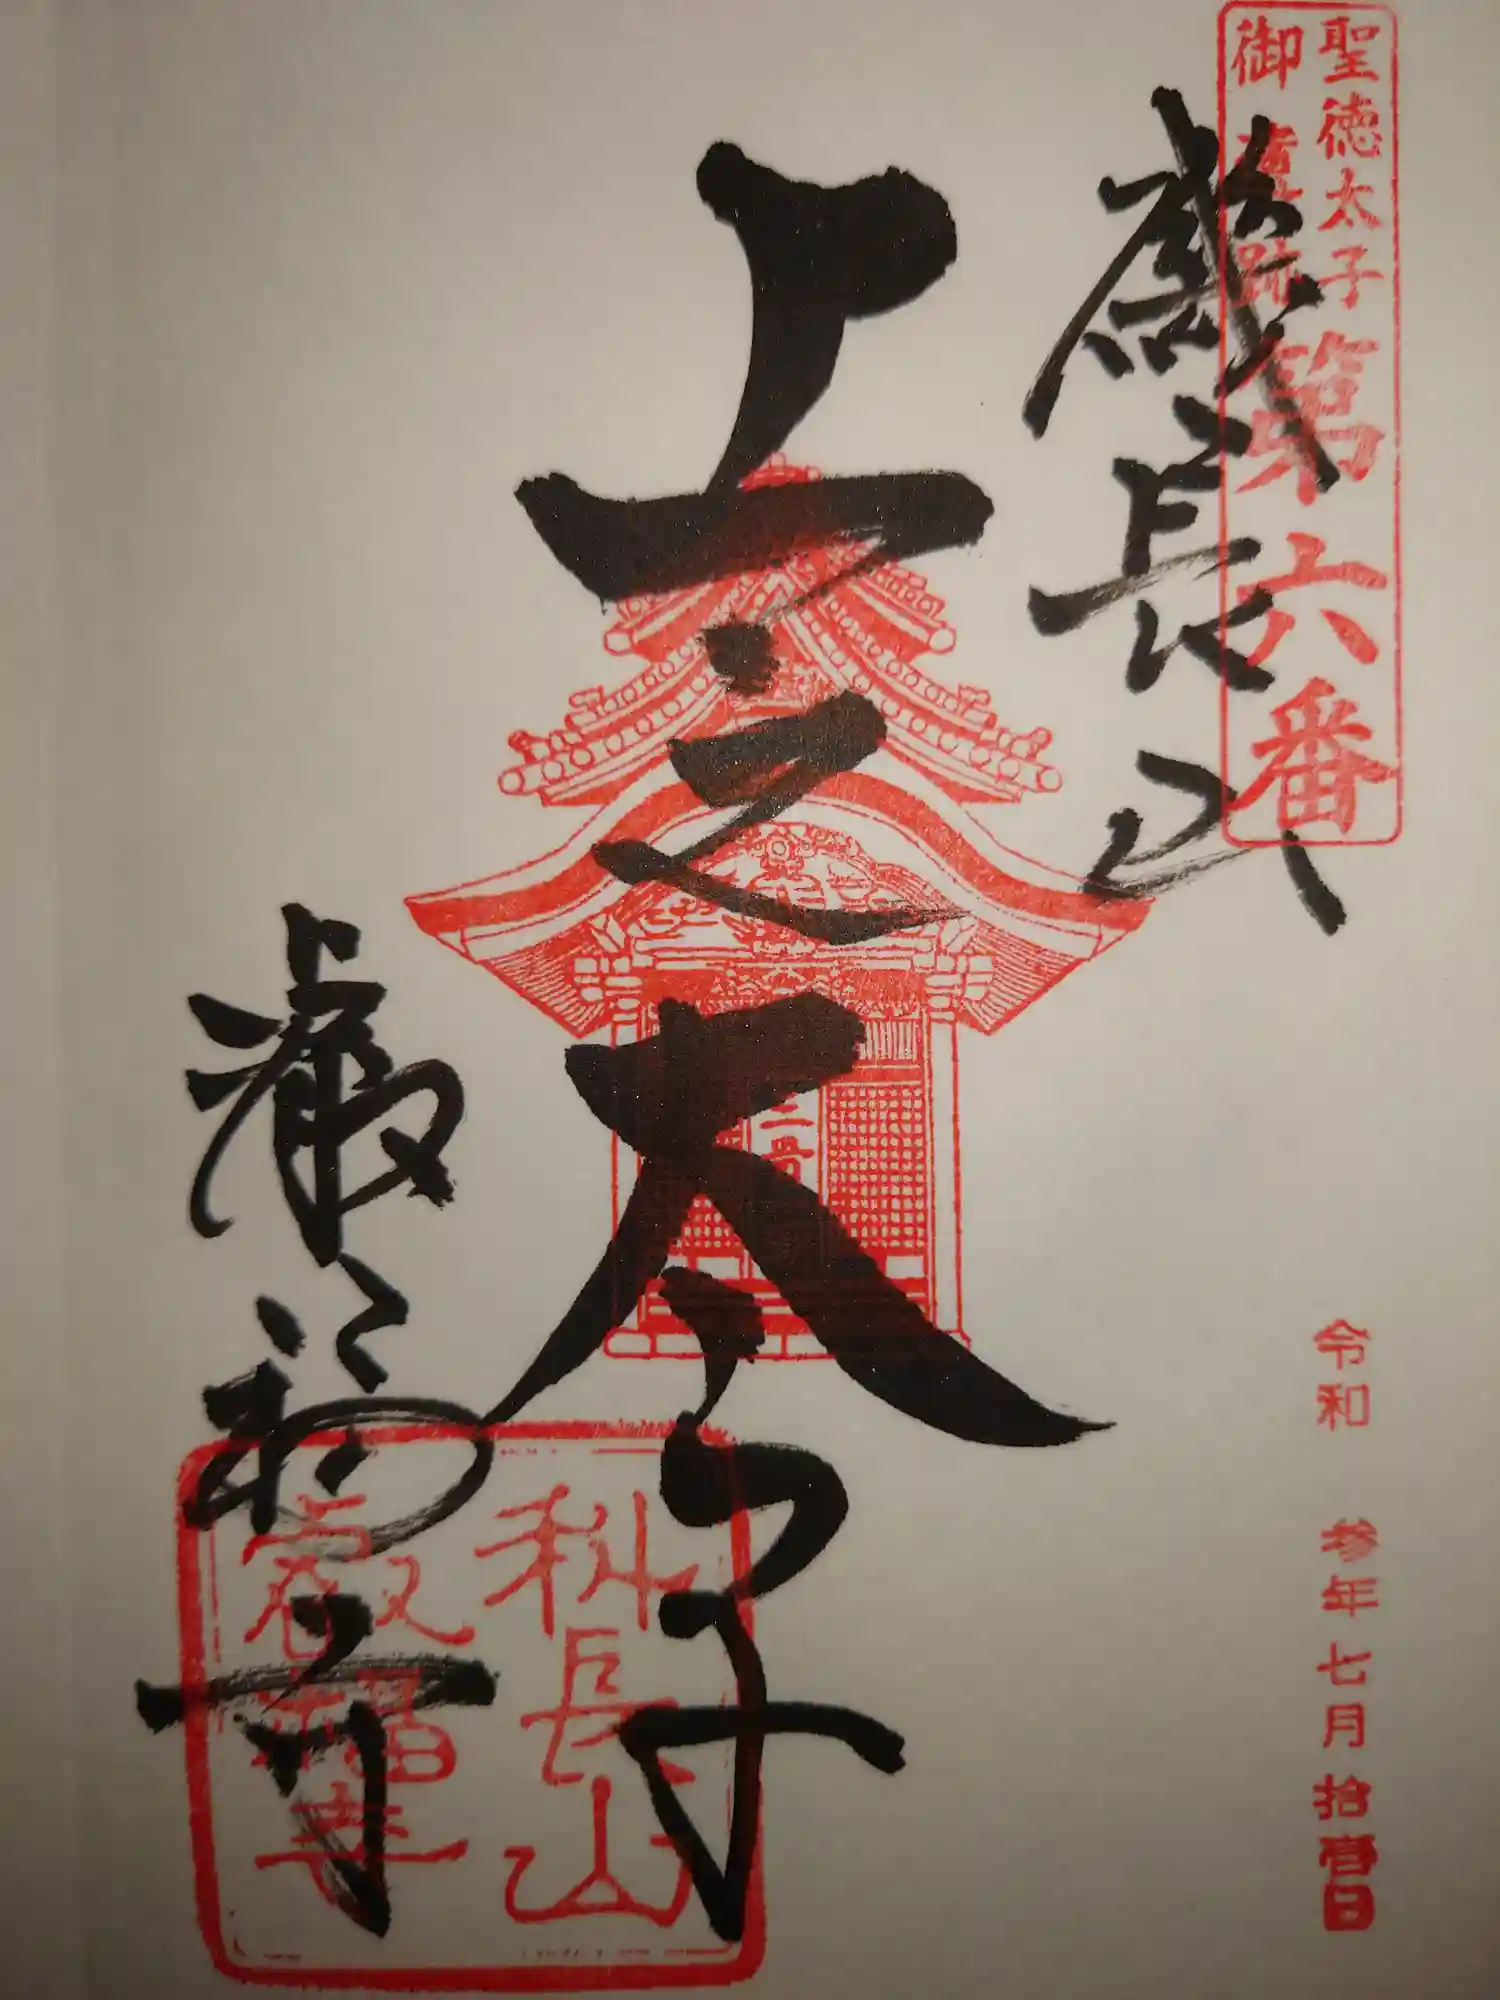 聖徳太子
御遺跡
第六番
磯長山
上之太子
叡福寺
三骨
科長山
叡福寺
令和 参年七月拾壹日